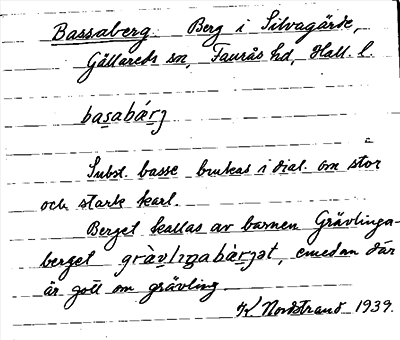 Bassaberg. Berg i Silvagärde,
Gällareds sn, Faurås hd, Hall. l.
baṣabárʒ
Subst. basse brukas i dial. om stor
och stark karl.
Berget kallas av barnen Grävlinga-
berget grὰvlıŋabὰrʒət, emedan där
är gott om grävling.
K Nordstrand 1939.